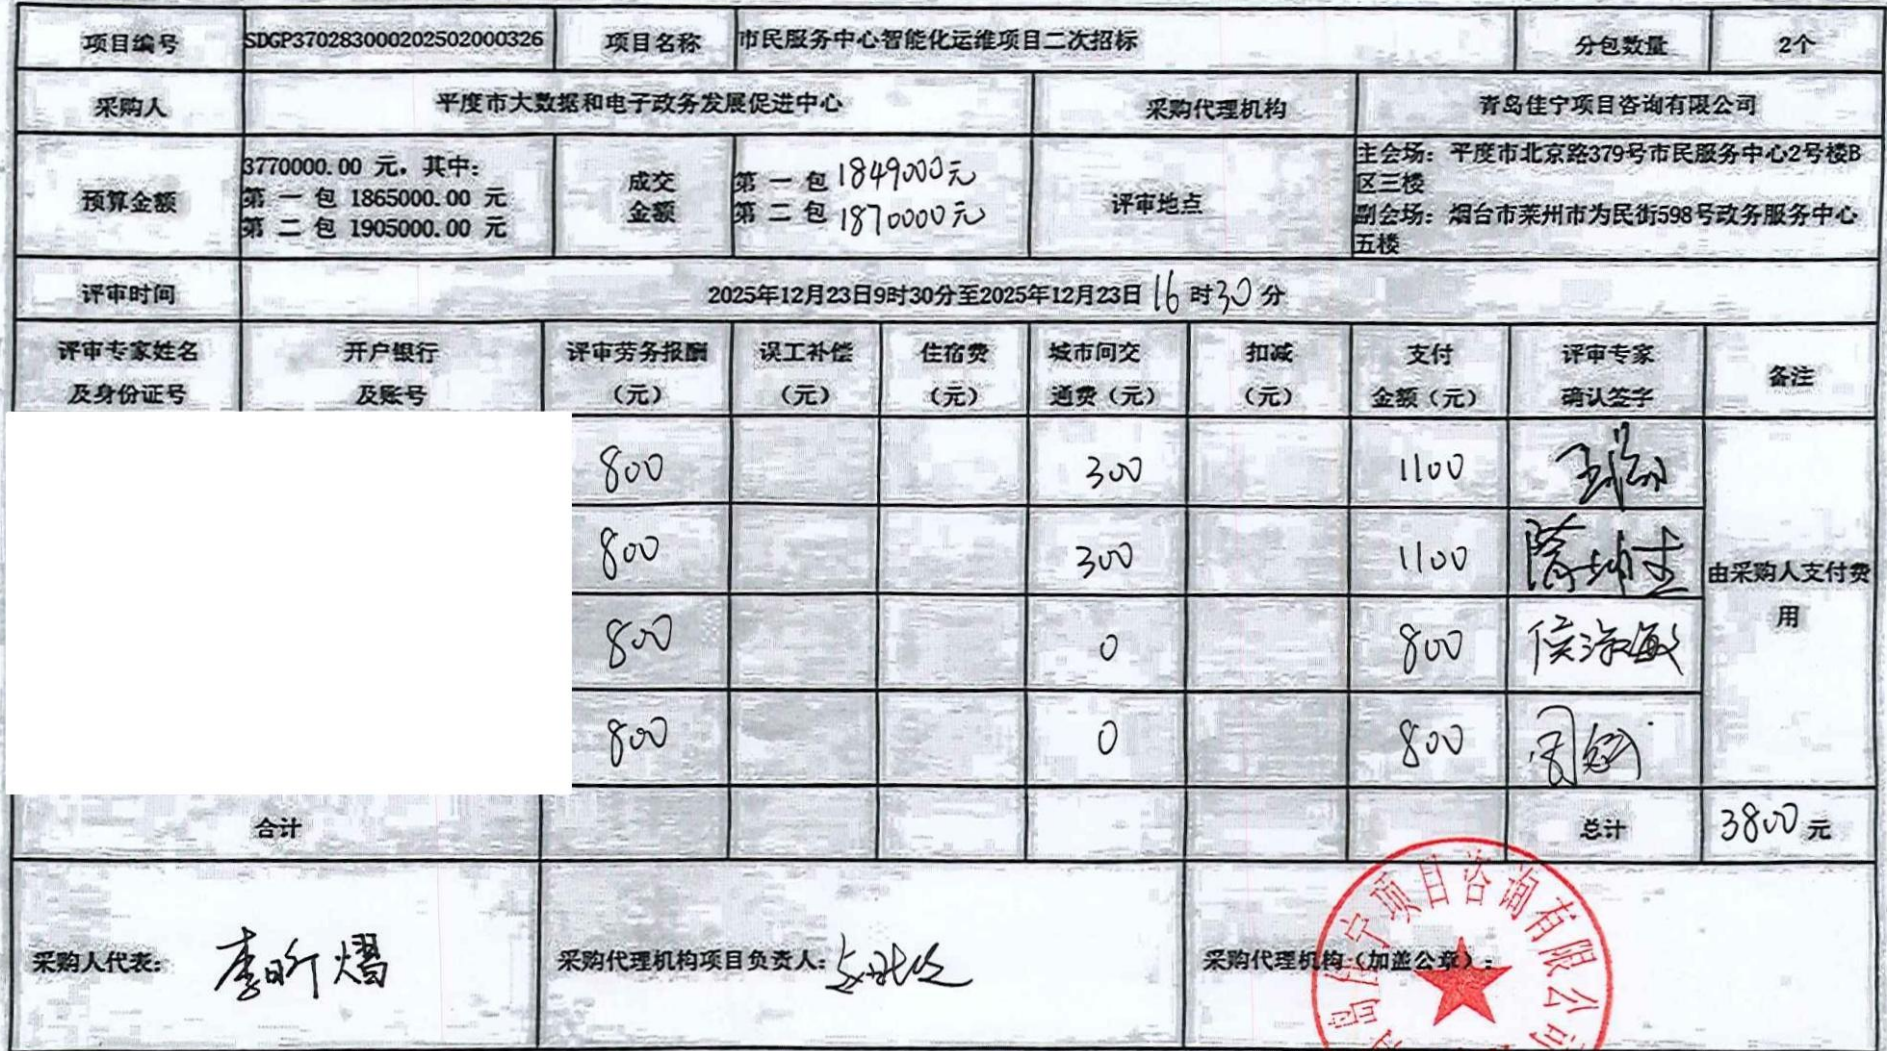 项目编号 SDGP370283000202502000326 项目名称 市民服务中心智能化运维项目二次招标 分包数量 2个
采购人 平度市大数据和电子政务发展促进中心 采购代理机构 青岛佳宁项目咨询有限公司
预算金额
3770000.00 元，其中：
第 一 包 1865000.00 元
第 二 包 1905000.00 元
成交
金额
第 一 包 1849000元
第 二 包 1870000元
评审地点
主会场：平度市北京路379号市民服务中心2号楼B
区三楼
副会场：烟台市莱州市为民街598号政务服务中心
五楼
评审时间 2025年12月23日9时30分至2025年12月23日 16 时 30 分
评审专家姓名
及身份证号
开户银行
及账号
评审劳务报酬
（元）
误工补偿
（元）
住宿费
（元）
城市间交
通费（元）
扣减
（元）
支付
金额（元）
评审专家
确认签字
备注
800 300 1100
800 300 1100
800 0 800 侯淑敏
800 0 800
由采购人支付费
用
合计 总计 3800 元
采购人代表： 李昕熠 采购代理机构项目负责人： 采购代理机构（加盖公章）：
青岛佳宁项目咨询有限公司